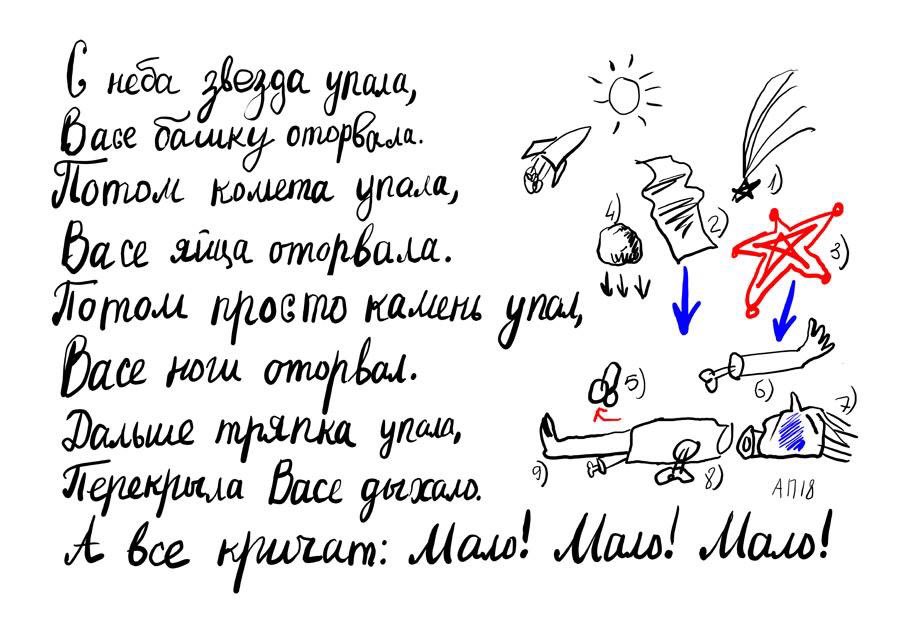 С неба звезда упала,
Васе башку оторвала.
Потом комета упала,
Васе яйца оторвала.
Потом просто камень упал,
Васе ноги оторвал.
Дальше тряпка упала,
Перекрыла Васе дыхало.
А все кричат: Мало! Мало! Мало!
1)
4)
2)
3)
5)
6)
7)
9)
8)
АП18